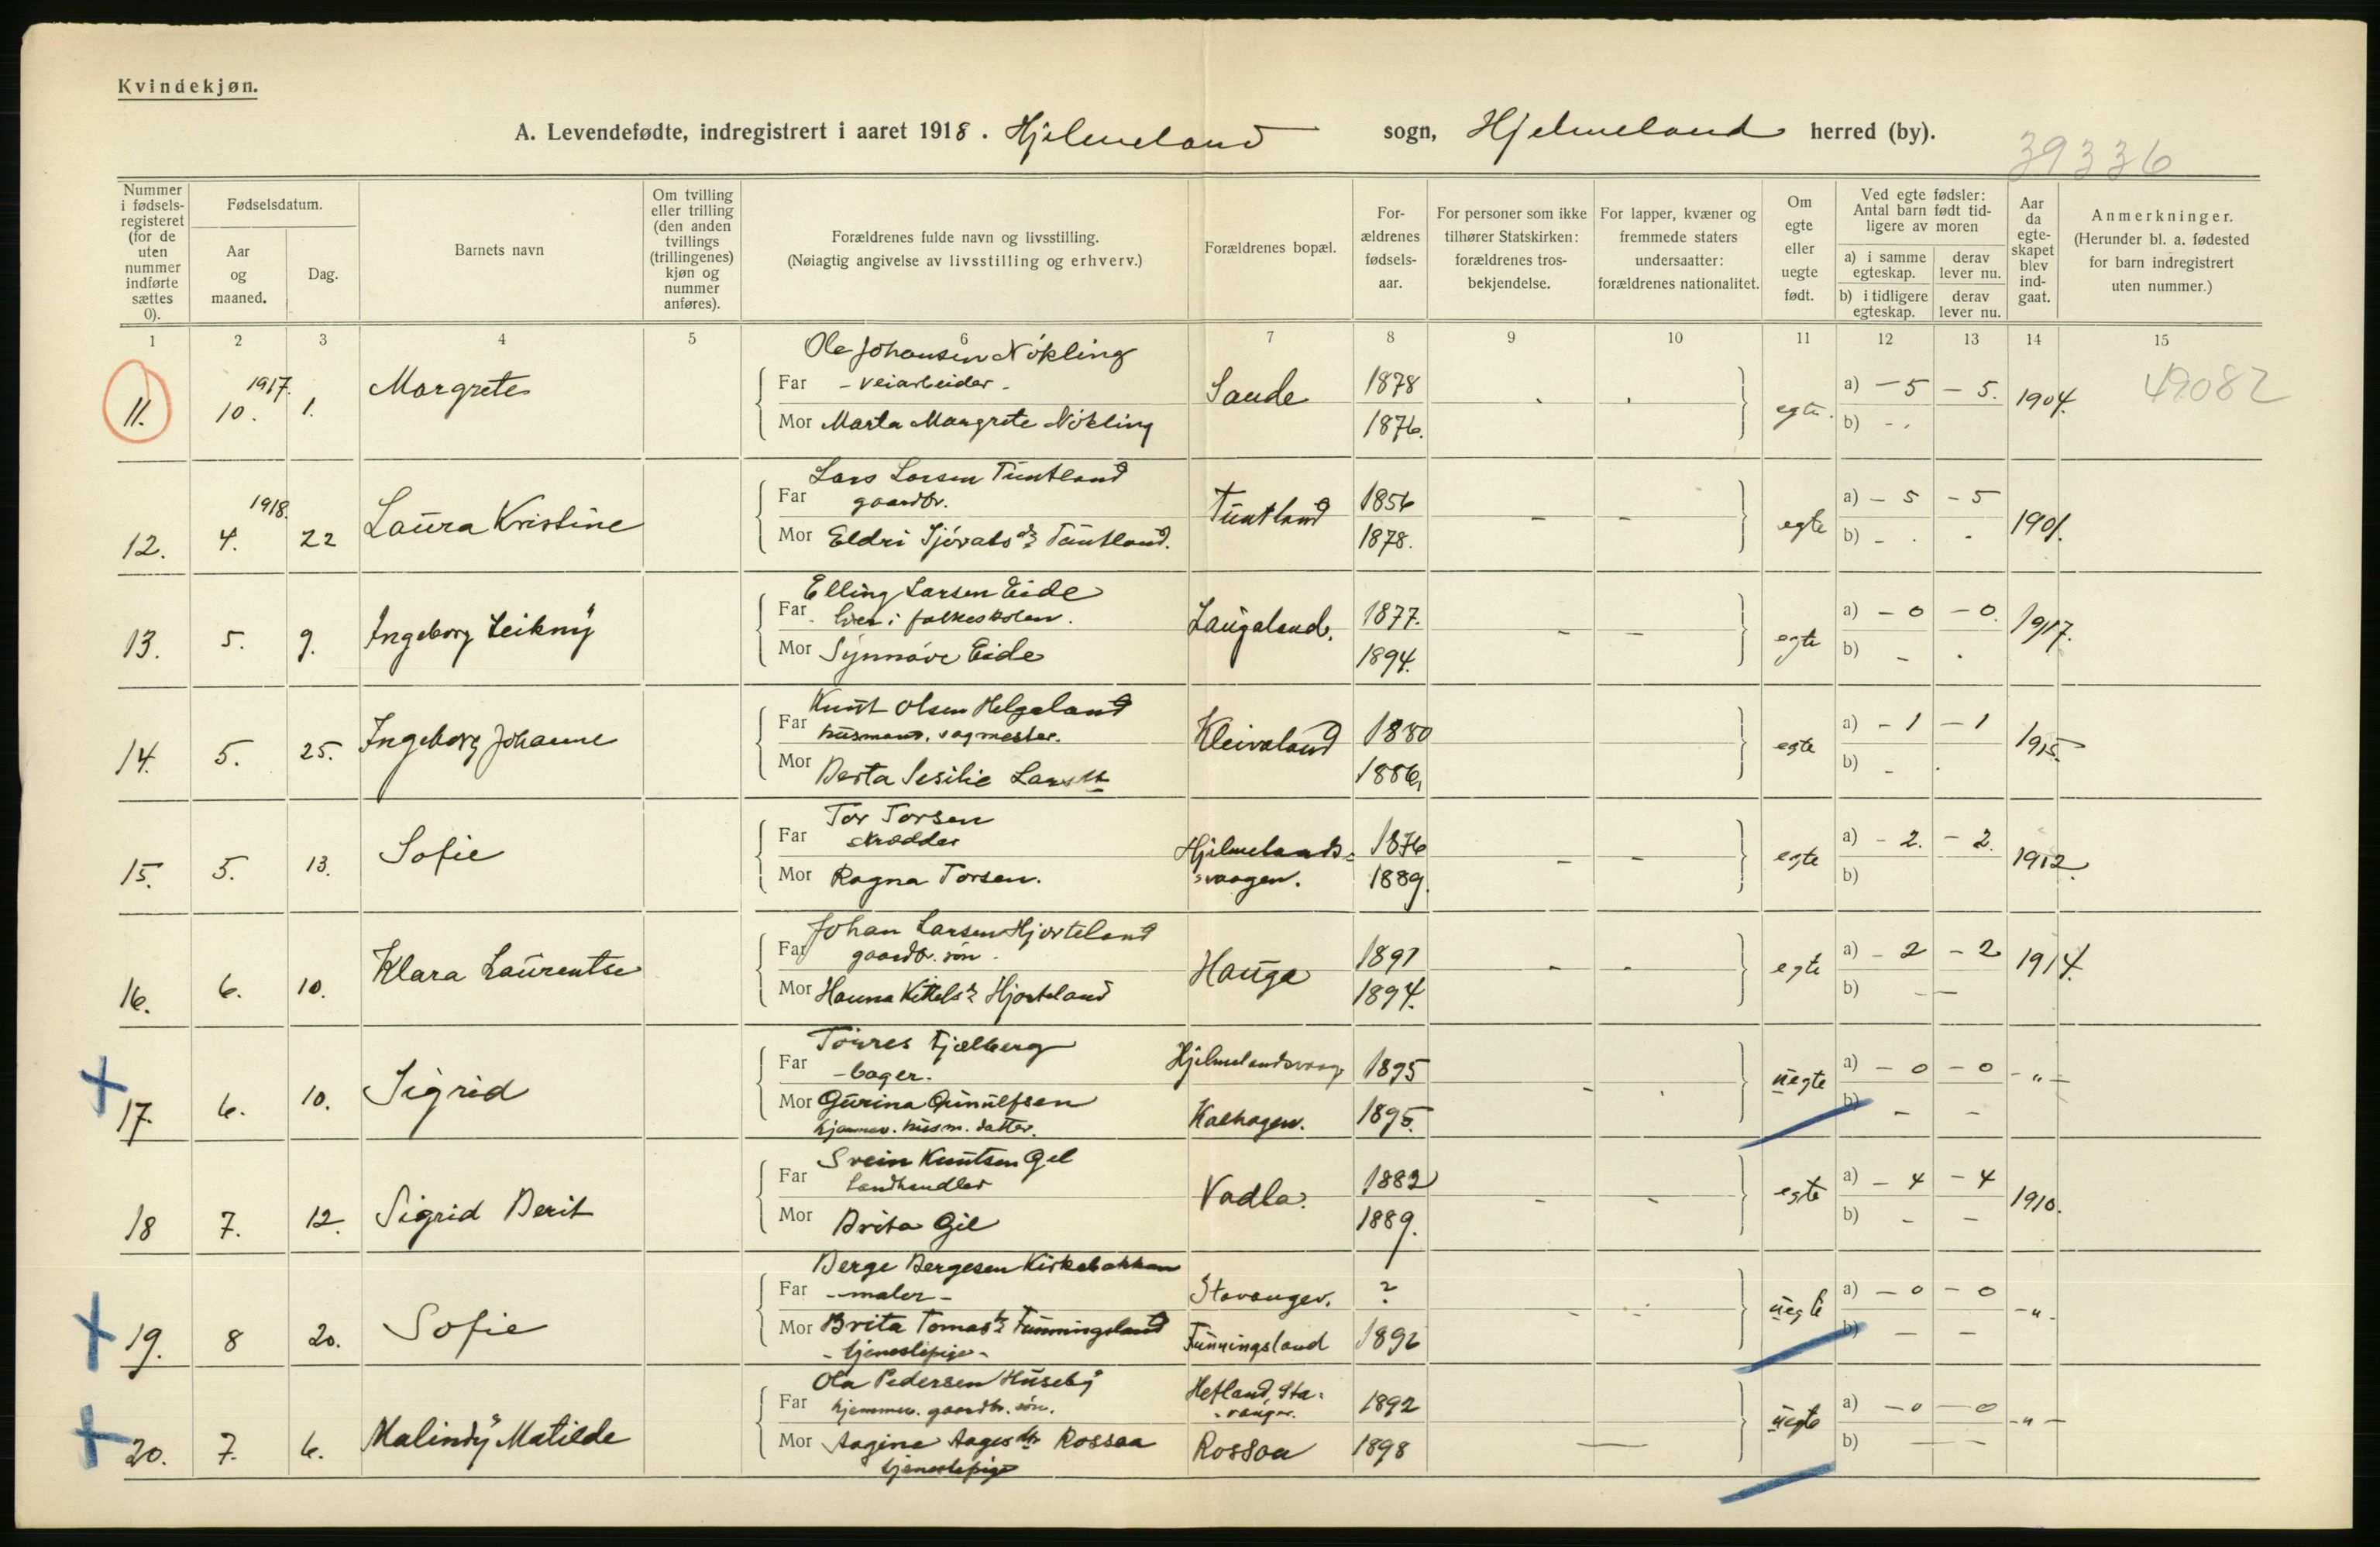 Kvindekjøn.
A. Levendefødte, indregistrert i aaret 1918. Hjelmeland sogn, Hjelmeland herred (by).
39336
Nummer i fødselsregisteret (for de uten nummer indførte sættes 0).
Fødselsdatum.
Aar og maaned.
Dag.
Barnets navn
Om tvilling eller trilling (den anden tvillings (trillingenes) kjøn og nummer anføres).
Forældrenes fulde navn og livsstilling.
(Nøiagtig angivelse av livsstilling og erhverv.)
Forældrenes bopæl.
Forældrenes fødselsaar.
For personer som ikke tilhører Statskirken: forældrenes trosbekjendelse.
For lapper, kvæner og fremmede staters undersaatter: forældrenes nationalitet.
Om egte eller uegte født.
Ved egte fødsler: Antal barn født tidligere av moren
a) i samme egteskap. derav lever nu.
b) i tidligere egteskap. derav lever nu.
Aar da egteskapet blev indgaat.
Anmerkninger.
(Herunder bl. a. fødested for barn indregistrert uten nummer.)
1 2 3 4 5 6 7 8 9 10 11 12 13 14 15
Ole Johansen Nökling
11. 1917. 10. 1. Margrete Far - veiarbeider - Sande 1878 egte. a) - 5 - 5. 1904. 49082
Mor Marta Margrete Nökling 1876. b) - .
Lars Larsen Tuntland
12. 1918. 4. 22 Laura Kristine Far gaardbr. Tuntland 1856 - - egte a) - 5 - 5 1901.
Mor Eldri Sjövatsdr Tuntland. 1878. b) - . .
Elling Larsen Eide
13. 5. 9. Ingeborg Leikny Far lærer i folkeskolen. Laugaland. 1877. - - egte a) - 0 - 0. 1917.
Mor Synnöve Eide 1894. b) - .
Knut Olsen Helgeland
14. 5. 25. Ingeborg Johanne Far husmand, sagmester. Kleivaland 1880 egte a) - 1 - 1 1915
Mor Berta Sesilie 1886. b) - .
Tor Torsen
15. 5. 13. Sofie Far skrædder Hjelmelands- 1876 - - egte a) - 2. - 2. 1912.
Mor Ragna Torsen. vaagen. 1889. b)
Johan Larsen Hjorteland
16. 6. 10. Klara Laurentse Far gaardbr. søn. Hauga 1891 - - egte a) - 2 - 2 1914.
Mor Hanna Kittelsdr Hjorteland 1894. b) - -
Törres Fjælberg
17. 6. 10. Sigrid Far - bager. Hjelmelandsvaag 1895 - . uegte a) - 0 - 0 - " -
Mor Gurina Gunulfsen Kalhagen. 1895. b) - -
hjemmev. husm. datter.
Svein Knutsen Gil
18 7. 12. Sigrid Berit Far Landhandler Vadla. 1882 - - egte a) - 4 - 4 1910.
Mor Brita Gil 1889. b) - -
Berge Bergesen Kirkebakken
19. 8 20. Sofie Far - maler - Stavanger. ? - - uegte a) - 0 - 0 - " -
Mor Brita Tomasdr Funningsland Funningsland 1896 b) - -
- tjenestepige -
Ola Pedersen Huseby
20. 7. 6. Malindy Matilde Far hjemmev. gaardbr. søn. Hetland, Stavanger. 1892 uegte a) - 0 - 0 - " -
Mor Aagine Aagesdtr Rossaa Rossaa 1898 — b) — -
tjenestepige